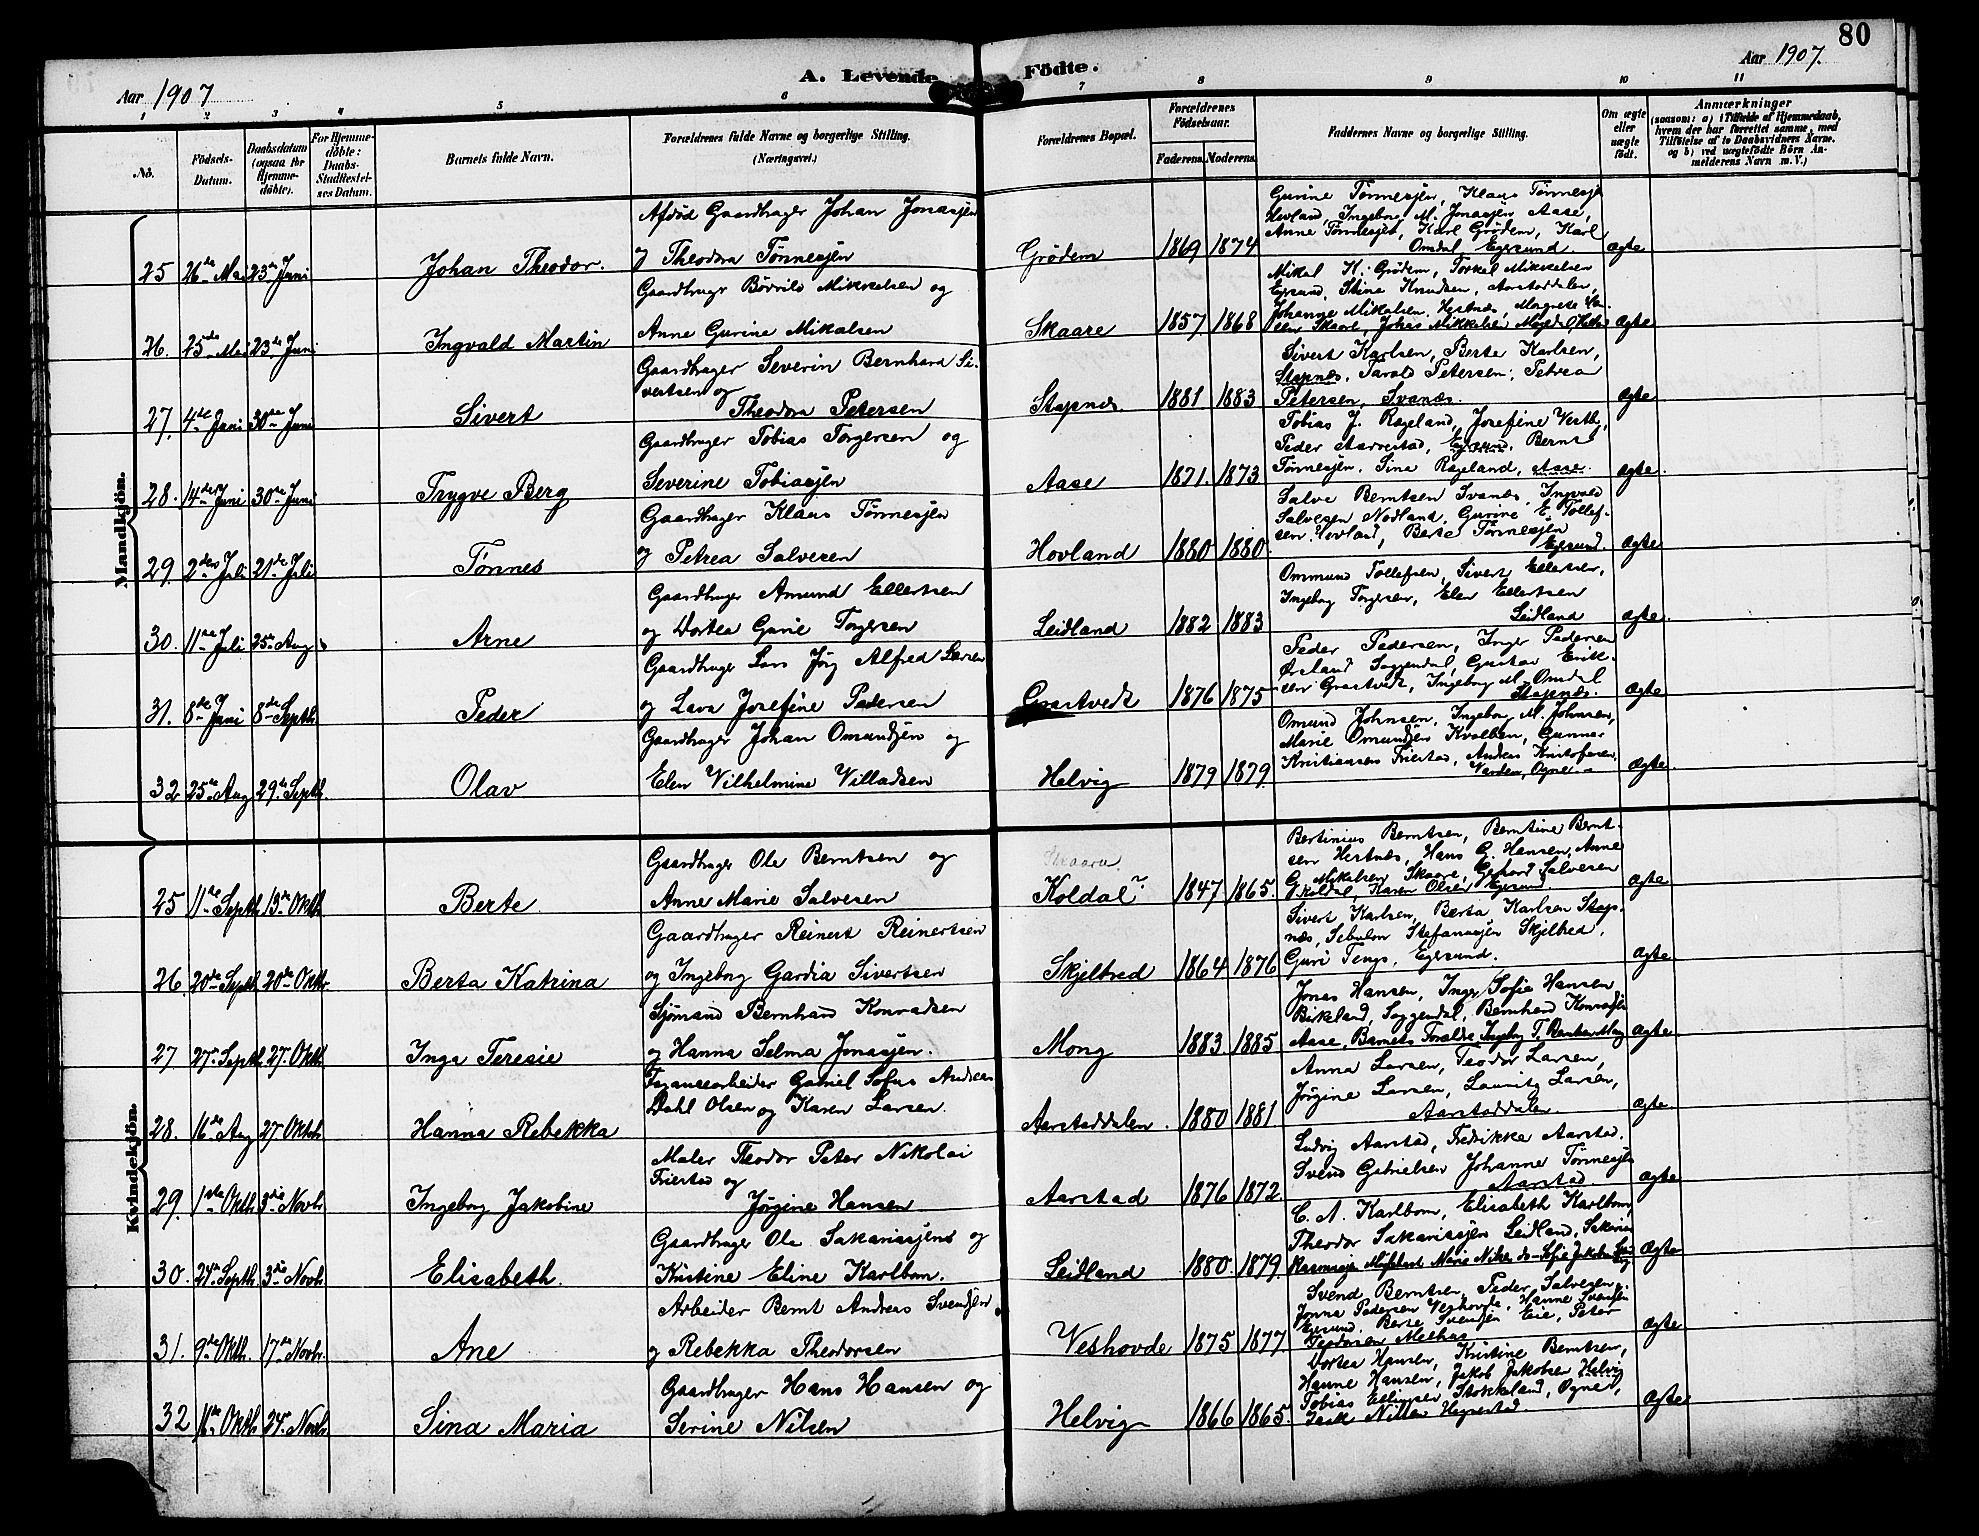 80
A. Levende Födte.
Aar 1907
Aar 1907.
1 2 3 4 5 6 7 8 9 10 11
No.
Födsels-Datum.
Daabsdatum (ogsaa for Hjemmedöbte).
For Hjemmedöbte: Daabs-Stadfestelses Datum.
Barnets fulde Navn.
Forældrenes fulde Navne og borgerlige Stilling. (Næringsvei.)
Forældrenes Bopæl.
Forældrenes Födselsaar.
Faderens. Moderens.
Faddernes Navne og borgerlige Stilling.
Om ægte eller uægte födt.
Anmærkninger
(saasom: a) i Tilfælde af Hjemmedaab, hvem der har forrettet samme, med Tilföielse af to Daabsvidners Navne. og b) ved uægtefödte Börn Anmelderens Navn m. V.)
Mandkjön.
25 26de Mai 23de Juni Johan Theodor.
Afdød Gaardbruger Johan Jonassen
og Theodora Tønnesjen
Grødem 1869 1874
Gurine Tønnesjen, Klaus Tønnesje
Hovland, Ingeborg M. Jonasjen Aase,
Anne Tønnesjen, Karl Grødem, Karl
Omdal, Egersund
ægte
26. 25de Mai 23de Juni Ingvald Martin
Gaardbruger Børvild Mikkelsen og
Anne Gurine Mikalsen
Skaare 1857 1868
Mikal H. Grødem, Torkel Mikkelsen
Egersund, Stine Knudsen, Aarstaddalen,
Johanne Mikalsen, Hestnes,
ægte
27. 4de Juni 30te Juni Sivert
Gaardbruger Severin Bernhard Si-
vertsen og
Theodora Petersen
Stapnes 1881 1883
Sivert Karlsen, Berte Karlsen,
Stapnæs, Tarald Petersen, Petrea
Petersen, Svanæs.
ægte
28. 14de Juni 30te Juni Trygve Berg
Gaardbruger Tobias Torgersen og
Severine Tobiasjen
Aase 1871. 1873
Tobias J. Rageland, Josefine Vestby,
Peder Aarrestad, Egersund, Bernt
Tønnesjen, Sina Rageland, Aase.
ægte.
29. 2den Juli 21de Juli Tønnes
Gaardbruger Klaus Tønnesjen
og Petrea Salvesen
Hovland 1880 1880
Salve Berntsen Svanæs, Ingvald
Salvesen Nodland, Gurine E. Tollef-
sen Hovland, Berte Tønnesjen
Egersund.
ægte
30. 11te Juli 25de Aug Arne
Gaardbruger Amund Ellertsen
og Dortea Gurie Torgersen
Leidland 1882 1883
Ommund Tollefsen, Sivert Ellertsen,
Ingeborg Torgersen, Elen Ellertsen
Leidland
ægte.
31. 8de Juni 8de Septb. Peder
Gaardbruger Lars Jørg Alfred Larsen
og Lava Josefine Pedersen
Graastvedt 1876 1875
Peder Pedersen, Inger Pedersen
Ørsland Soggendal, Gustav Erik-
sen Graatvedt, Ingeborg M. Omdal
Stapnæs.
ægte
32 25de Aug 29de Septb. Olav
Gaardbruger Johan Omundsjen og
Elen Vilhelmine Villadsen
Helvig 1879 1879
Omund Johnsen, Ingeborg M. Johnsen,
Marie Omundsjen Kvalben, Gunnar
Kristiansen Friestad, Andreas Kristofersen
Varden, Ogne.
ægte
Kvindekjön.
25 11te Septb. 13de Oktb. Berte
Gaardbruger Ole Berntsen og
Anne Marie Salvesen
Skaara
Koldal? 1847 1865.
Bertinius Berntsen, Berntine Bernt-
sen Hestnæs, Hans G. Hansen, Anne
G. Mikalsen Skaare, Gerhard Salvesen
Koldal, Karen Olsen Egersund
ægte
26. 20de Septb. 20de Oktbr. Berta Katrina
Gaardbruger Reinert Reinertsen
og Ingeborg Gardia Sivertsen
Skjelbred 1864 1876
Sivert Karlsen, Berta Karlsen Stap-
næs, Sebulon Stefanusjen Skjelbred,
Guri Tengs, Egersund.
ægte
27 27de Septb. 27. Oktb. Inga Teresie
Sjømand Bernhard Konradsen
og Hanna Selma Jonasjen.
Mong 1883 1885
Jonas Hansen, Inger Sofie Hansen
Birkeland, Soggendal, Bernhard Konradsjen
Aase, Barnets Foraldre,
ægte
28. 16de Aug 27 Oktb. Hanna Rebekka
Fajansearbeider Gabriel Sofus Andreas
Dahl Olsen og Karen Larsen.
Aarstaddalen. 1880 1881
Anna Larsen, Teodor Larsen,
Jørgine Larsen, Lauritz Larsen,
Aarstaddalen.
ægte.
29. 1ste Oktb. 3die Novb. Ingeborg Jakobine
Maler Theodor Peter Nikolai
Friestad og
Jørgine Hansen
Aarstad 1876 1872
Ludvig Aarstad, Fredrikke Aarstad.
Svend Gabrielsen Johanne Tønnesjen
Aarstad
ægte
30. 24de Septb. 3die Novb. Elisabeth.
Gaardbruger Ole Sakariasjens og
Kristine Eline Karlbom.
Leidland 1880. 1879.
C. A. Karlbom, Elisabeth Karlbom,
Theodor Sakariasjen Leidland, Sakarias
ægte
31. 9de Oktb. 17de Novb. Ane
Arbeider Bernt Andreas Svendsjen
og Rebekka Theodorsen
Veshovde 1875 1877
Svend Berntsen, Peder Salvesen,
Jonna Pedersen Veshovde, Hanne Svendsjen
Egersund, Berte Svendsjen Eie, Peter
Teodorsen Melhus
ægte
32 16de Oktb. 24de Novb. Sina Maria
Gaardbruger Hans Hansen og
Serine Nilsen
Helvig 1866 1865.
Dortea Hansen, Kristine Berntsen,
Hanne Hansen, Jakob Jakobsen Helvig
Tobias Ellingsen Stokkeland, Ogne,
Isak Nilsen Hegrestad.
ægte